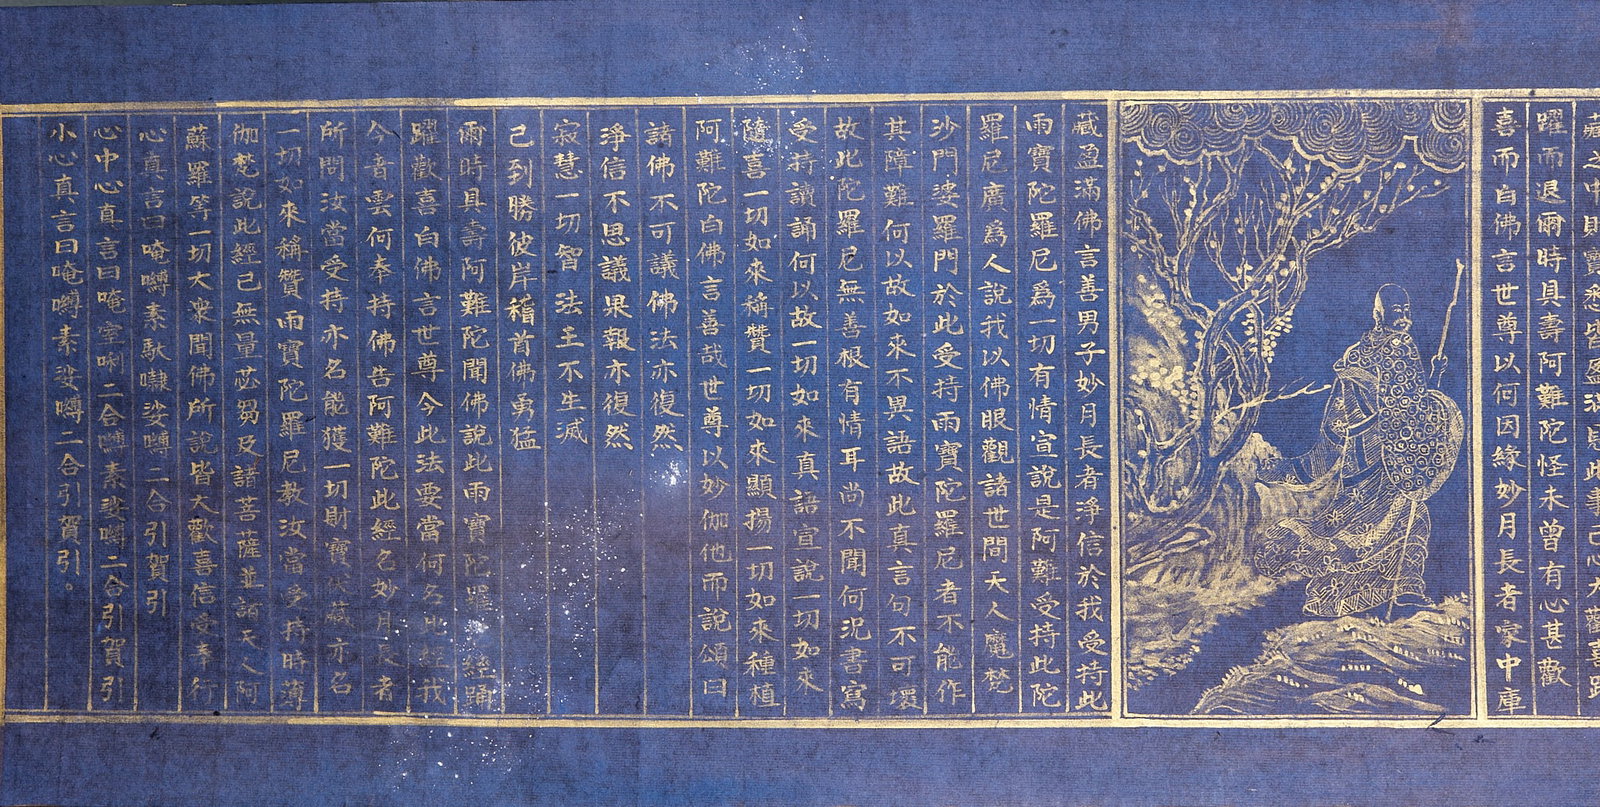 藏之中財寶悉皆盈滿見此事己心大歡喜踊
躍而退爾時具壽阿難陀怪未曾有心甚歡
喜而白佛言世尊以何因緣妙月長者家中庫
藏盈滿佛言善男子妙月長者淨信於我受持此
雨寶陀羅尼爲一切有情宣說是阿難受持此陀
羅尼廣爲人說我以佛眼觀諸世間天人魔梵
沙門婆羅門於此受持雨寶陀羅尼者不能作
其障難何以故如來不異語故此真言句不可壞
故此陀羅尼無善根有情耳尚不聞何況書寫
受持讀誦何以故一切如來真語宣說一切如來
隨喜一切如來稱贊一切如來顯揚一切如來種植
阿難陀白佛言善哉世尊以妙伽他而說頌曰
諸佛不可議佛法亦復然
淨信不思議果報亦復然
寂慧一切智法主不生滅
己到勝彼岸稽首佛勇猛
爾時具壽阿難陀聞佛說此雨寶陀羅尼經踊
躍歡喜白佛言世尊今此法要當何名此經我
今音雲何奉持佛告阿難陀此經名妙月長者
所問汝當受持亦名能獲一切財寶伏藏亦名
一切如來稱贊雨寶陀羅尼教汝當受持時薄
伽梵說此經己無量苾芻及諸菩薩並諸天人阿
蘇羅等一切大衆聞佛所說皆大歡喜信受奉行
心真言曰唵嚩素馱𡃤娑嚩二合引賀引
心中心真言曰唵室唎二合嚩素娑嚩二合引賀引
小心真言曰唵嚩素娑嚩二合引賀引。